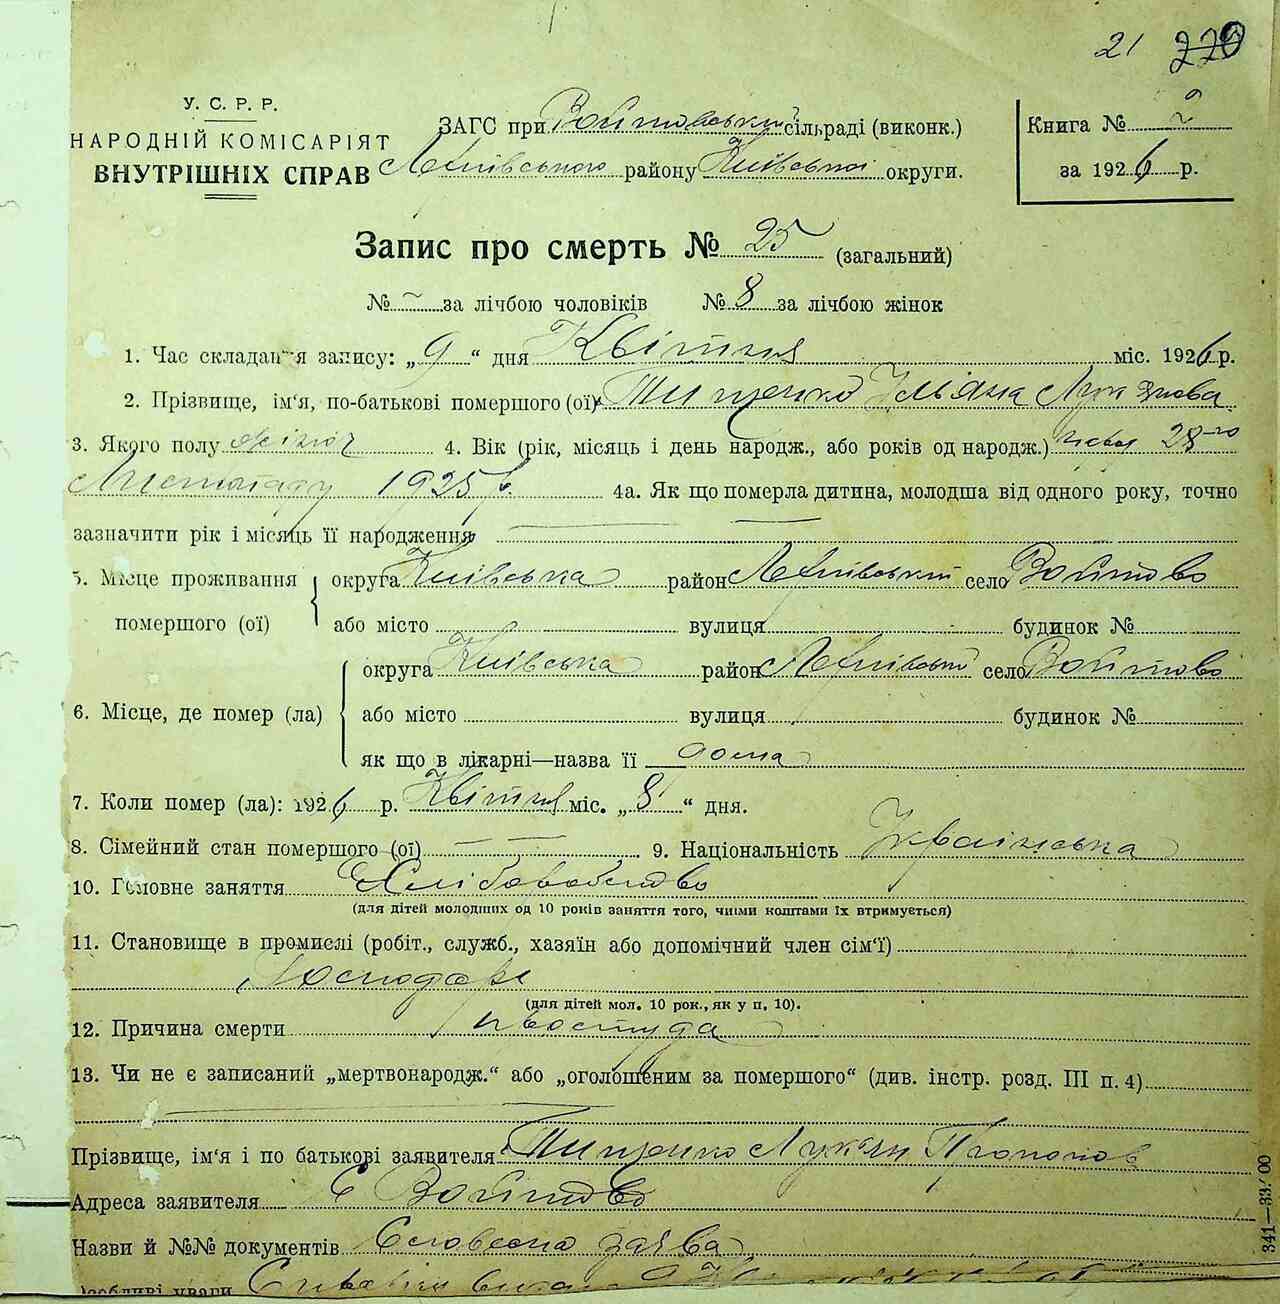 21 220
У. С. Р. Р.
НАРОДНІЙ КОМІСАРІЯТ
ВНУТРІШНІХ СПРАВ
ЗАГС при Войтовський сільраді (виконк.)
району Київської округи.
Книга № 2
за 1926 р.
Запис про смерть № 25 (загальний)
№ – за лічбою чоловіків № 8 за лічбою жінок
1. Час складання запису: „ 9 “ дня Квітня міс. 1926 р.
2. Прізвище, ім'я, по-батькові помершого (ої) Тищенко Ульяна Лук'янова
3. Якого полу жіноч 4. Вік (рік, місяць і день народж., або років од народж.) народ 28-го
Листопаду 1925 р. 4а. Як що померла дитина, молодша від одного року, точно
зазначити рік і місяць її народження
5. Місце проживання помершого (ої)
округа Київська район село Войтово
або місто вулиця будинок №
6. Місце, де помер (ла)
округа Київська район село Войтово
або місто вулиця будинок №
як що в лікарні—назва її дома
7. Коли помер (ла): 1926 р. Квітня міс. „ 8 “ дня.
8. Сімейний стан помершого (ої) 9. Національність Українська
10. Головне заняття Хліборобство
(для дітей молодших од 10 років заняття того, чиїми коштами їх втримується)
11. Становище в промислі (робіт., служб., хазяїн або допомічний член сім'ї)
Господарь
(для дітей мол. 10 рок., як у п. 10).
12. Причина смерти простуда
13. Чи не є записаний „мертвонародж.“ або „оголошеним за помершого“ (див. інстр. розд. III п. 4)
Прізвище, ім'я і по батькові заявителя Тищенко Лук'ян
Адреса заявителя с Войтово
Назви й №№ документів Словесна заява
Особливі уваги
341—33.00